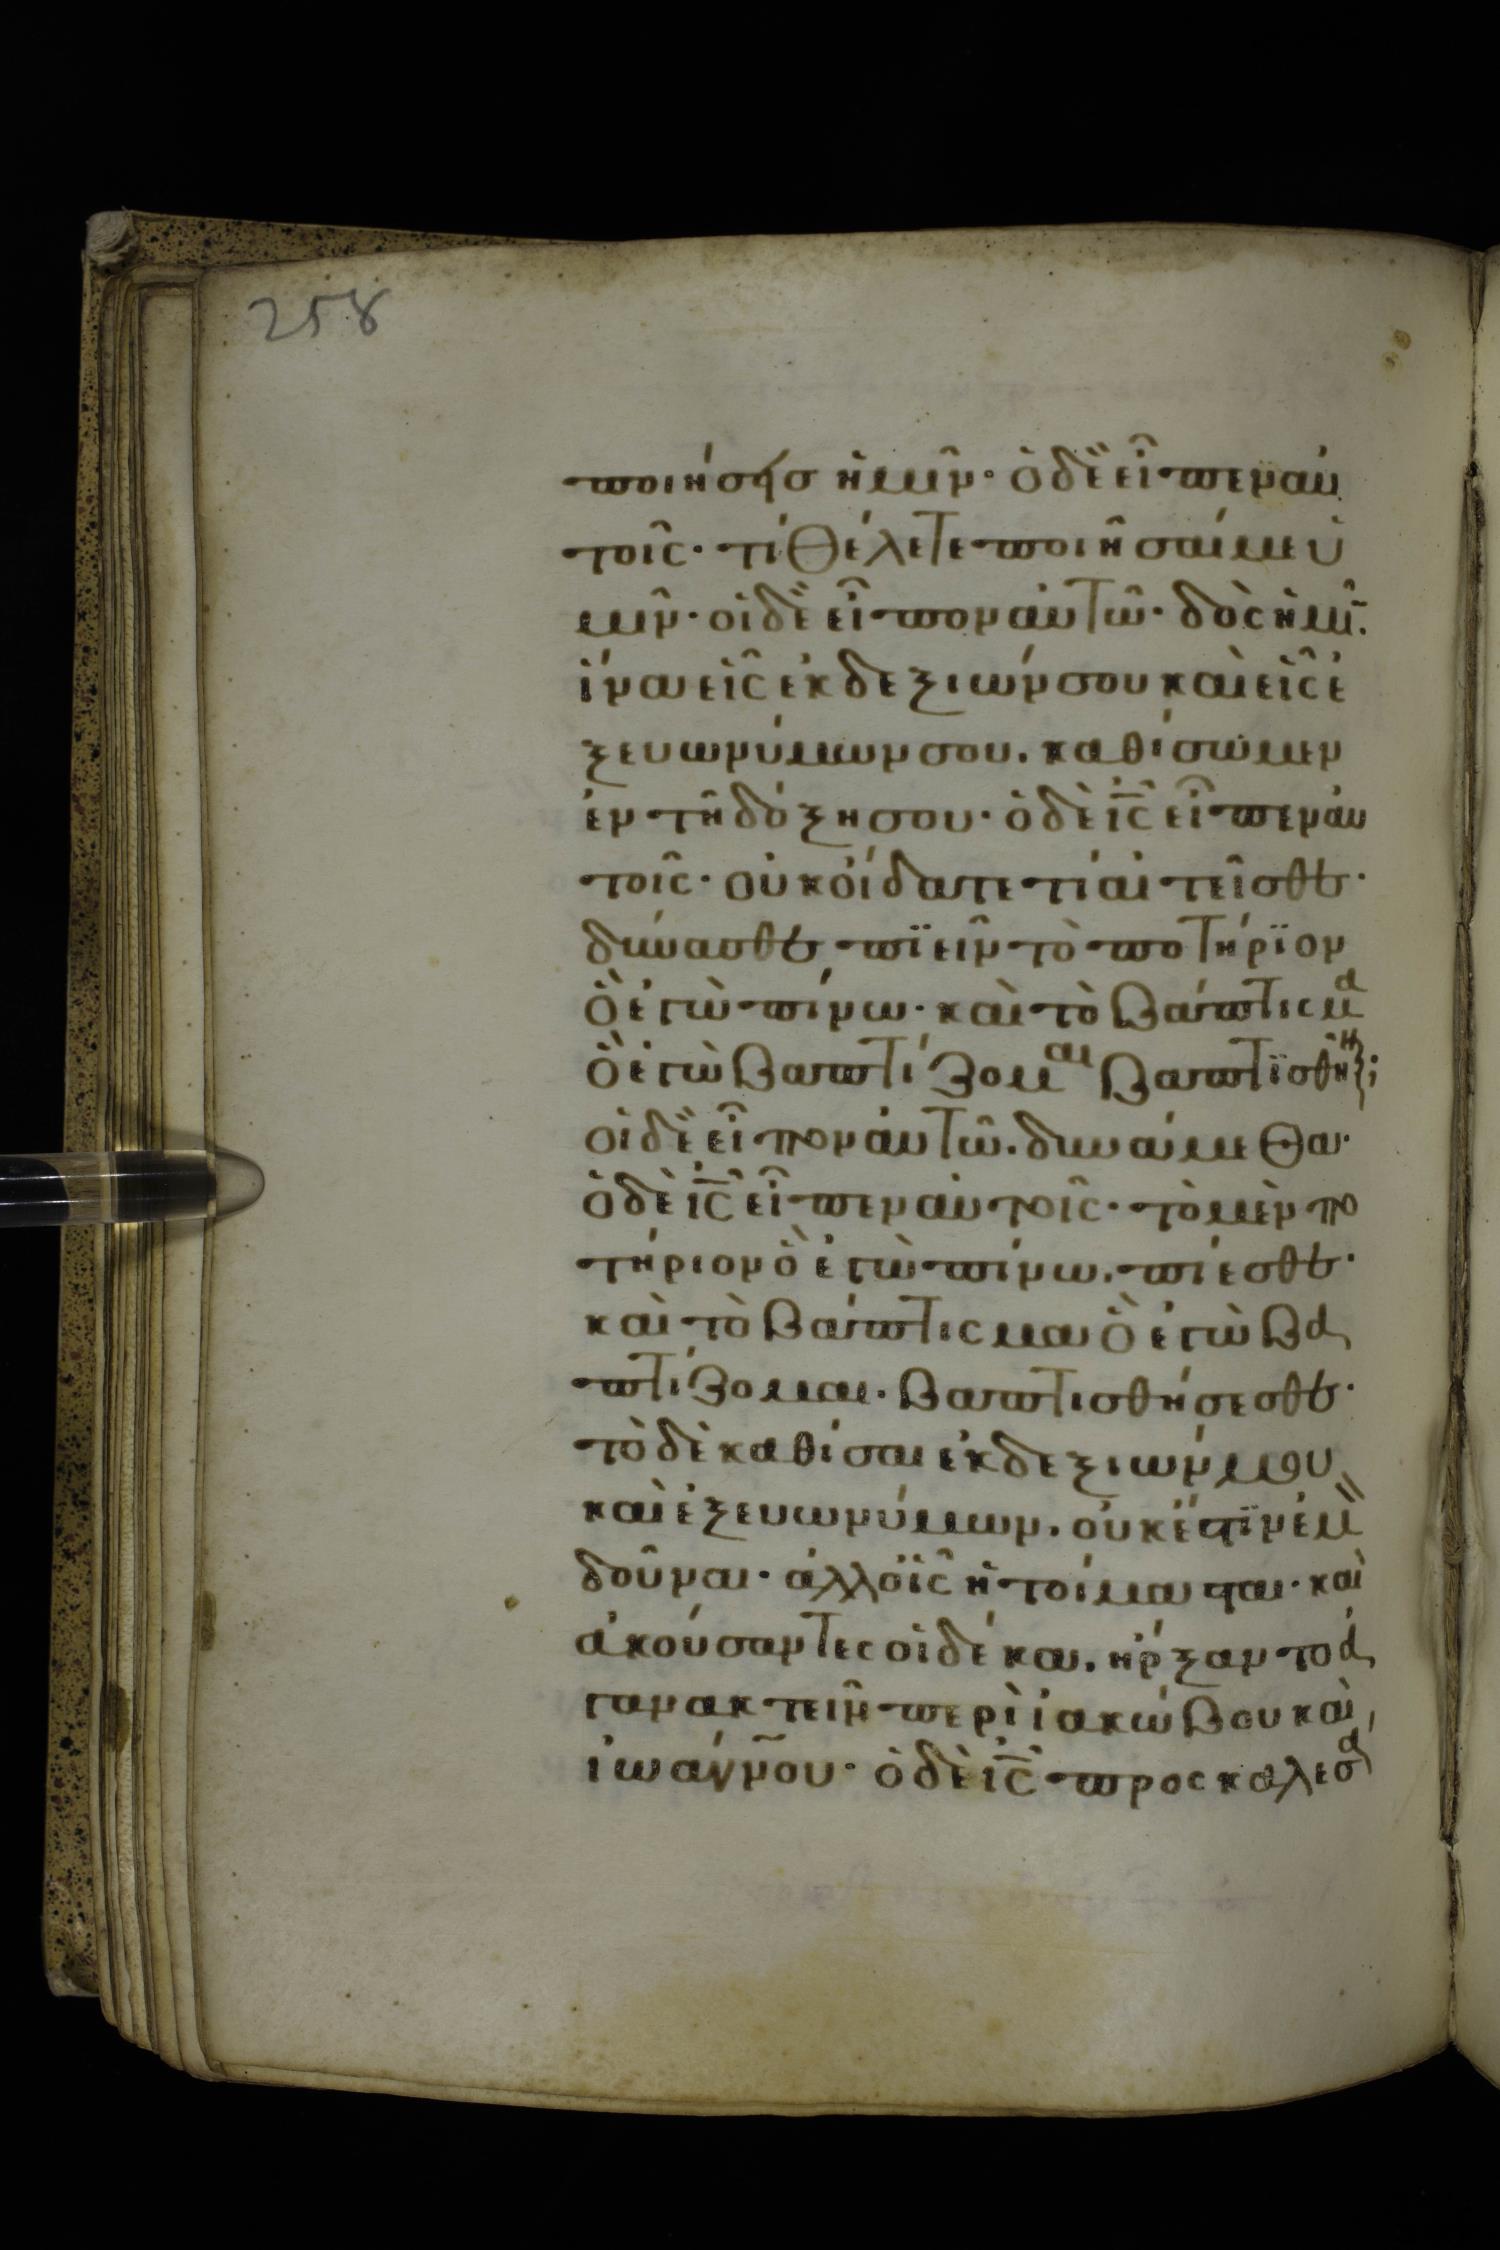 258
ποιήσῃσ ἡμῖν· ὁ δὲ εἶπεν αὐ
τοῖς· τί θέλετε ποιῆσαί με ὑ
μῖν· οἱ δὲ εἶπον αὐτῶ· δὸς ἡμῖ.
ἵνα εἷς ἐκ δεξιών σου καὶ εἷς ἐ
ξ ευωνύμων σου. καθίσωμεν
ἐν τῆ δόξη σου· ὁ δὲ ἰς εἶπεν αὐ
τοῖς· οὐκ οἴδατε τί αἰτεῖσθε·
δύνασθε πϊεῖν τὸ ποτήρϊον
ὃ ἐγὼ πίνω· καὶ τὸ βάπτισμα
ὃ ἐγὼ βαπτίζομαι βαπτϊσθῆνη;
οἱ δὲ εἶπον αὐτῶ. δυνάμεθα·
ὁ δὲ ἰς εἶπεν αὐτοῖς· τὸ μὲν πο
τήριον ὃ ἐγὼ πίνω. πίεσθε·
καὶ τὸ βάπτισμα ὃ ἐγὼ βα
πτίζομαι. βαπτισθήσεσθε·
τὸ δὲ καθίσαι ἐκ δεξιών μου
καὶ ἐξ ευωνύμων. οὐκ έστϊν ἐμὸ
δοῦναι· ἀλλ οἷς ἡτοίμασται· καὶ
ἀκούσαντες οἱ δέκα. ήρξαντο ἀ
γανακτεῖν περὶ ἰακώβου καὶ
ἰωάννου· ὁ δὲ ἰς προσκαλεσά